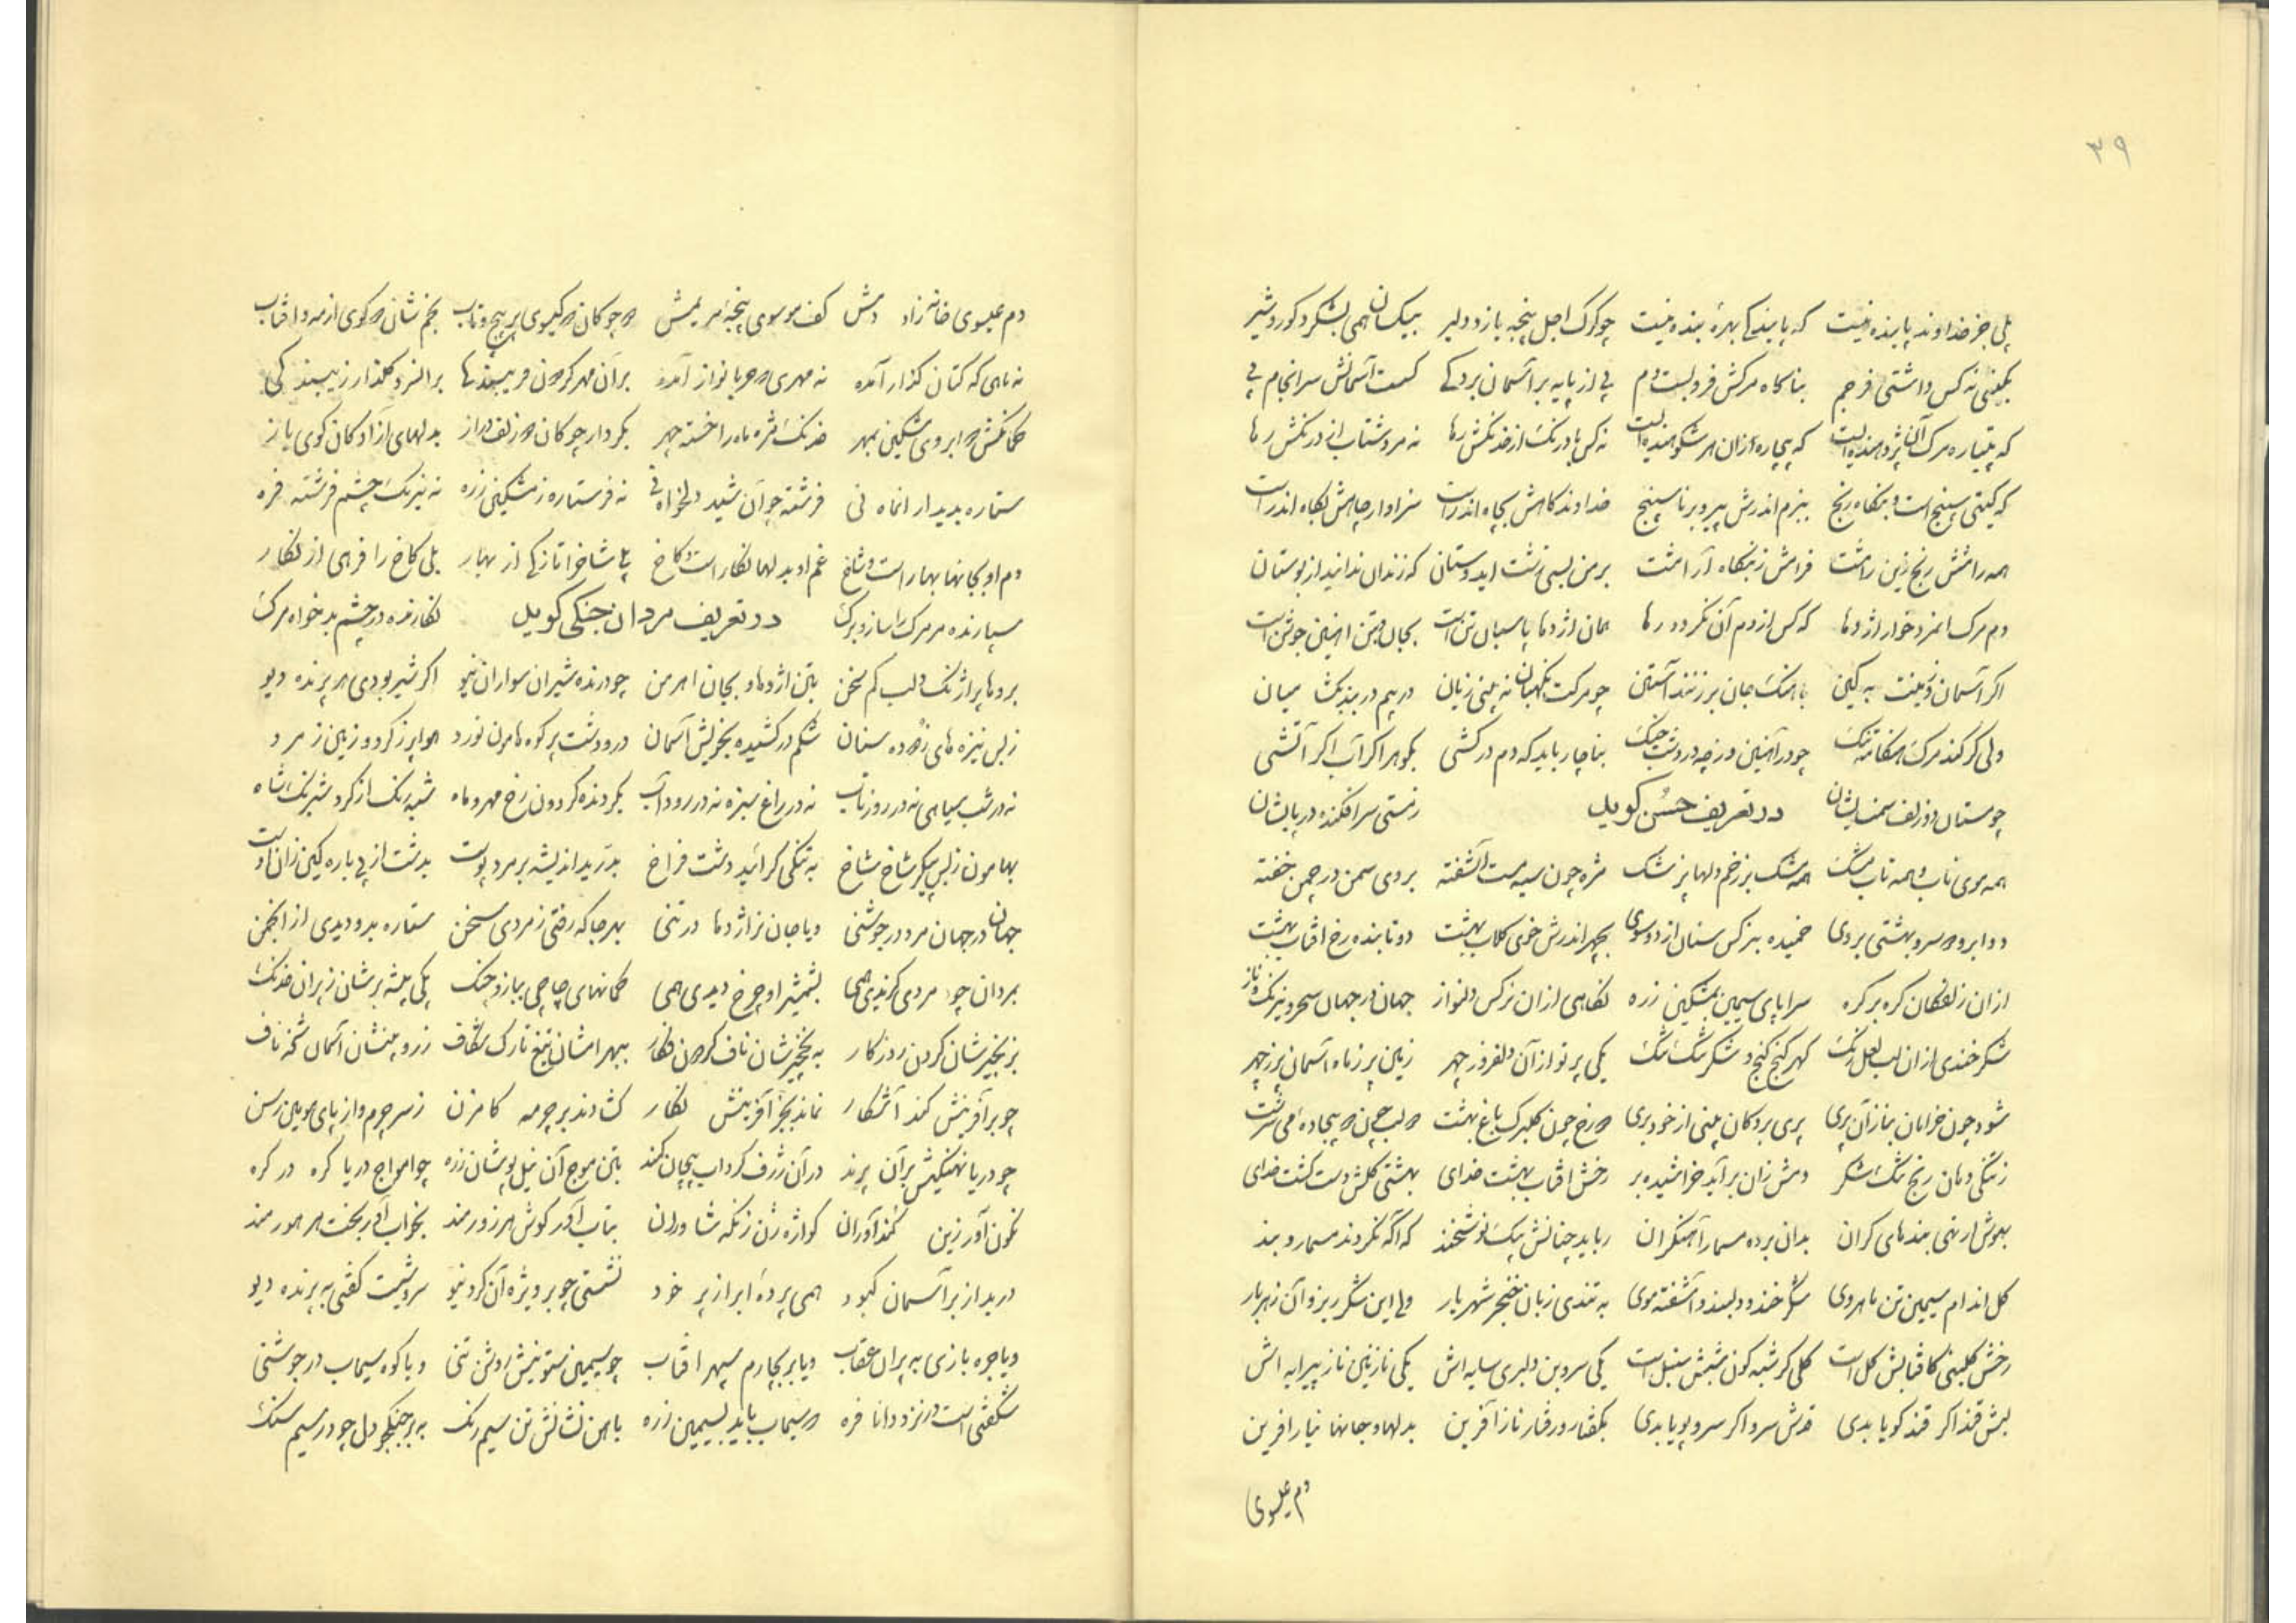 ۳۹
بلی جز خداوند پاینده نیست که پایندکی بهرهٔ بنده نیست چو کرک اجل پنجه یازد دلیر بیکسان همی بشکرد کور و شیر
بکیتی نه کس داشتی فر جم بناکاه مرکش فرو بست دم پی از پایه بر آسمان برد کی آسمانش سرانجام پی
که پتیاره مرک آن پژوهنده است که بیچاره زان هر شکوهنده است نه کس با درنک از خدنکش رها نه مرد شتاب از درنکش رها
که کیتی سپنج است و بنکاه رنج ببزم اندرش پیر و برنا سپنج خداوند کاهش بچاه اندر است سزاوار چاهش بکاه اندر است
همه رامشش رنج زین رامشت فرامش ز بنکاه آرامشت بر من بسی زشت اید دوستان که زندان ندانید از بوستان
دم مرک انمرد خوار اژدها که کس از دم آن نکردد رها همان اژدها پاسبان تن است بجان و بتن اهنین جوشن است
اکر آسمان و زمینت به کین باهنک جان بر زنند آستین چو مرکت نکهبان نه بینی زیان در بیم در بند بکشا میان
ولی کر کند مرک هنکامه تنک چو در آهنین دز چه در دشت جنک بناچار باید که دم در کشی بکوهر اکر آب اکر آتشی
چو مستان دو زلف سمن سایشان در تعریف حسن کوید ز مستی سر افکنده در پایشان
همه موی ناب و همه تاب مشک همه مشک بر زخم دلها پزشک مژه چون سیه مست آشفته بر دی سمن در چمن خفته
دو ابرو دو سر و بهشتی بر دی خمیده بنرکس ستان از دو سوی بچهر اندرش خوی کلاب بهشت دو تابنده رخ افتاب بهشت
ازان زلفکان کره بر کره سراپای سیمین بمشکین زره نکاهی ازان نرکس دلنواز جهان در جهان سحر و نیرنک و ناز
شکر خندی ازان لب لعل رنک کهر کنج کنج و شکر تنک تنک یکی پرتو از آن دلفروز چهر زمین پر ز ماه آسمان پر ز مهر
شود چون خرامان بناز آن پری پری بر دکان بینی از خود بری دو رخ چون کلبرک باغ بهشت دو لب چون دو بیجاده می سرشت
ز تنکی دهان رنج تنک شکر دمش زان بر آید خراشیده بر رخش افتاب بهشت خدای بهشتی کلش دست کشت خدای
بهوش ار نهی بندهای کران بدان برده مسمار آهنکران رباید چنانش بیک نوشخند که آکه نکردند مسمار و بند
کل اندام سیمین تن ماهروی شکر خند و دلبند و آشفته موی به تندی زبان خنجر شهریار ولی این شکر ریز و آن زهربار
رخش کلبنی کافتابش کل است کلی کز شبه کون شبش سنبل است یکی سرو بن دلبری سایه اش یکی نازنین ناز پیرایه اش
لبش قند اکر قند کویا بدی قدش سرو اکر سرو پویا بدی بکفتار و رفتار ناز آفرین بدلها و جانها نیاز افرین
دم عیسوی
دم عیسوی خانه زاد دمش کف موسوی پنجهٔ مریمش دو چوکان دو کیسوی پر پیچ و تاب بخم شان دو کوی از مه و افتاب
نه ماهی که کتان کذار آمده نه مهری که حربا نواز آمده بران مهر کردون فریبندها بر النرد کلنار زیبند کی
کمانکش دو ابروی مشکین بمهر خدنک مژه ماه را خسته چهر بکردار چوکان دو زلف دراز بدلهای آزادکان کوی باز
ستاره بدیدار انماه نی فرشته چو آن شید دلخواه نی نه فر ستاره ز مشکین زره نه نیرنک چشم فرشته فره
دم او بجانها بهار است و شاخ غم او بدلها نکار است و کاخ بلی شاخ را تازکی از بهار بلی کاخ را فرهی از نکار
سپارنده مر مرک را ساز و برک در تعریف مردان جنکی کوید نکارنده در چشم بدخواه مرک
بروها پر اژنک و لب کم سخن بتن اژدها و بجان اهرمن چو درنده شیران سواران نیو اکر شیر بودی هر پرنده دیو
ز بس نیزه های زدوده سنان شکم در کشیده بخویش آسمان در و دشت پر کوه هامون نورد هوا پر ز کرد و زمین ز مرد
نه در شب سیاهی نه در روز تاب نه در راغ سبزه نه در رود آب بکردنده کردون رخ مهر و ماه شبه رنک از کرد شبرنک شاه
بهامون ز بس پیکر شاخ شاخ به تنکی کرائید دشت فراخ بدرید اندیشه بر مرد پوست بدشت از پی باره کین زان اوست
جهان در جهان مرد در جوشنی و یا جان نر اژدها در تنی بهر جا که رفتی ز مردی سخن ستاره بدو دیدی از انجمن
بمردان چو مردی کزیدی همی بشمشیر او چرخ دیدی همی کمانهای چاچی ببازو بچنک یکی بیشه بر شان ز پران خدنک
بزنجیر شان کردن روزکار به نخجیرشان ناف کردون فکار ببهرامشان تیغ تارک شکاف ز روبینشان آسمان شخه ناف
چو بر آفرینش کند آشکار نماند بجز آفرینش نکار کشادند بر چرمه کامزن ز سر چرم و از پای مویین رسن
چو دریا نهنکیش بر آن پرند در آن ژرف کرداب پیچان کمند بتن موج آن نیل پوشان زره چو امواج دریا کره در کره
نکون آور زین کندآوران کوازه زن زنکه شاوران بتاب آور کوش هر زورمند بخواب آور بخت هر هورمند
در بد از بر آسمان کبود همی پرده ابر از پر خود نشستی چو بر ویژه آن کرد نیو سروشیت کفتی به پرنده دیو
و یا جره بازی به پران عقاب و یا بر بچارم سپهر افتاب چو سیمین ستونیش روشن تنی و یا کوه سیماب در جوشنی
شکفتی است در نزد دانا فره دو سیماب باید بسیمین زره باهن نشانش تن سیم رنک به بر جنکجو دل چو در سیم سنک